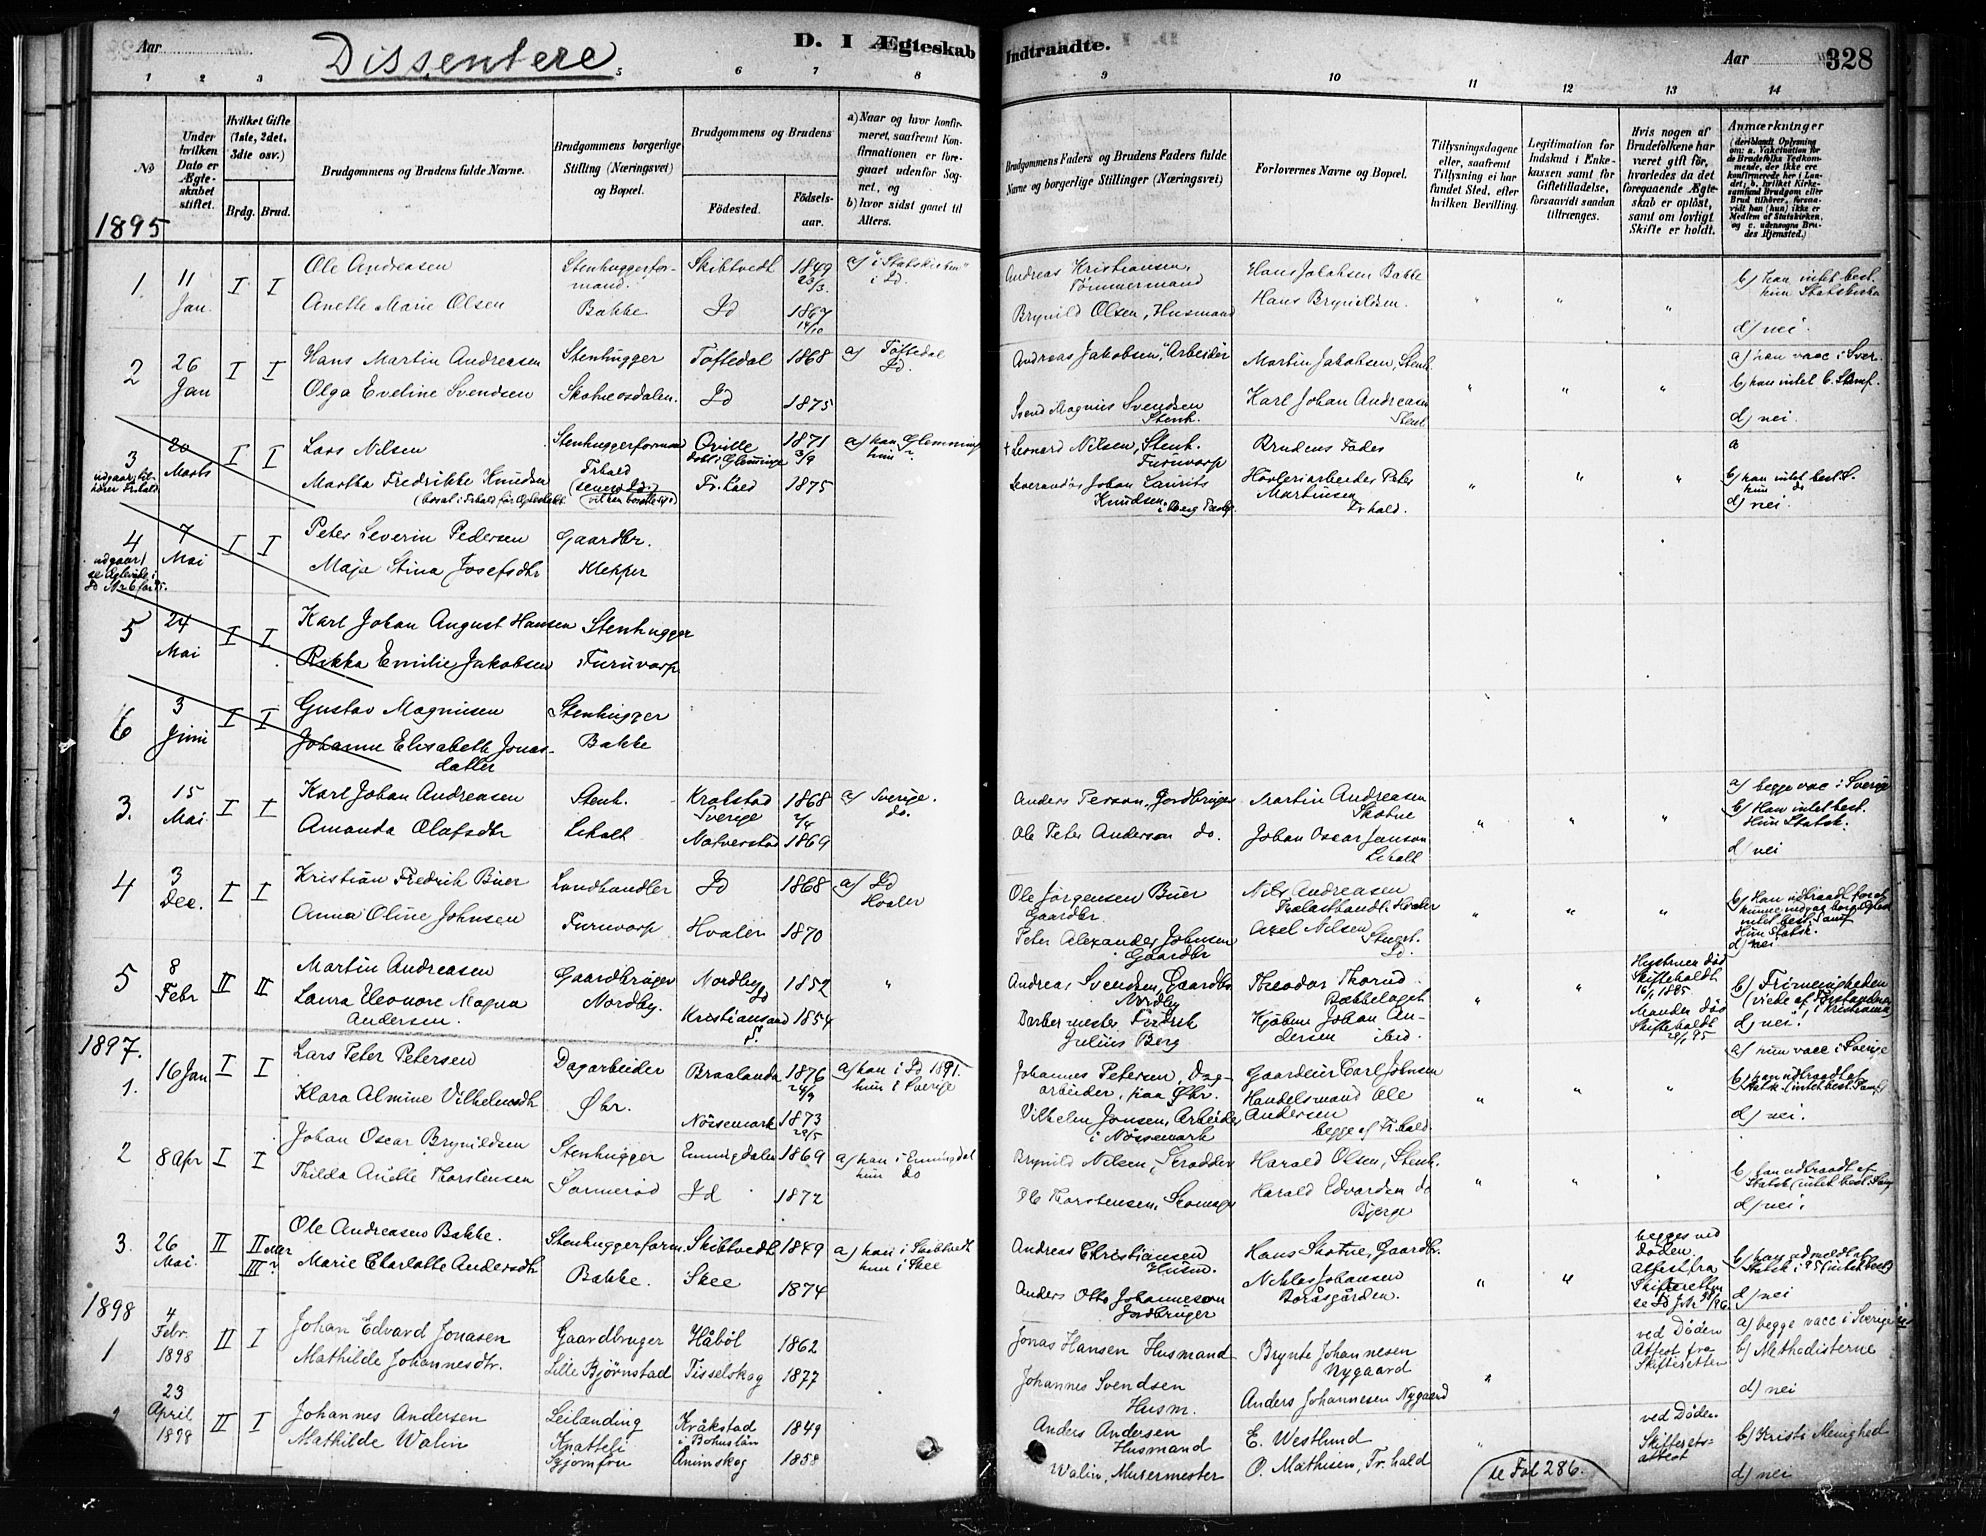 Aar
Dissentere.
D. I Ægteskab
Indtraadte.
Aar
328
1 2 3 5 6 7 8 9 10 11 12 13 14
No
Under hvilken Dato er Ægteskabet stiftet.
Hvilket Gifte (1ste, 2det, 3die osv.)
Brdg. Brud.
Brudgommens og Brudens fulde Navne.
Brudgommens borgerlige Stilling (Næringsvei) og Bopæl.
Brudgommens og Brudens
Fødested.
Fødselsaar.
a) Naar og hvor konfirmeret, saafremt Konfirmationen er foregaaet udenfor Sognet, og
b) hvor sidst gaaet til Alters.
Brudgommens Faders og Brudens Faders fulde Navne og borgerlige Stillinger (Næringsvei)
Forlovernes Navne og Bopæl.
Tillysningsdagene eller, saafremt Tillysning ei har fundet Sted, efter hvilken Bevilling.
Legitimation for Indskud i Enkekassen samt for Giftetilladelse, forsaavidt saadan tiltrænges.
Hvis nogen af Brudefolkene har været gift før, hvorledes da det foregaaende Ægteskab er opløst, samt om lovligt Skifte er holdt.
Anmærkninger
1895
1 11 Jan. I I
Ole Andreasen
Anette Marie Olsen
Stenhuggerformand.
Bakke
Skibtvedt 1849 23/3.
Id 1867 14/10
a) "i Statskirken" i Id.
Andreas Kristiansen, Tømmermand
Brynild Olsen, Husmand
Hans Jakobsen Bakke
Hans Brynildsen.
b) han intet best. hun Statskirke
d) nei.
2 26 Jan I I
Hans Martin Andreasen
Olga Eveline Svendsen
Stenhugger
Skotnesdalen.
Töftedal 1868
Id 1875
a) Töftedal Id.
Andreas Jakobsen, Arbeider
Svend Magnus Svendsen Stenh.
Martin Jakobsen, Stenh.
Karl Johan Andreasen Stenh.
a) han vacc i Sver.
b) han intet b. Samf.
d) nei.
3 20 Marts I I
Lars Nilsen
Martha Fredrikke Knudsen
Stenhuggerformand
Frhald
Qville 1871 3/9
Fr.hald 1875
a) han Glemminge
hun
† Leonard Nilsen, Stenh. Furuvarp
Johan Laurits Knudsen, i Berg
Brudens Fader
Høvleriarbeider Peter Martinsen Frhald.
a
b) han intet best. S. hun do
d) nei.
4 7 Mai I I
Peter Severin Pedersen
Maja Stina Josefsdtr
Gaardbr.
Klepper
5 24 Mai I I
Karl Johan August Hansen
Rikka Emilie Jakobsen
Stenhugger
Furuvarp
6 3 Juni I I
Gustav Magnusen
Johanne Elisabeth Jonasdatter
Stenhugger
Bakke
3. 15 Mai I I
Karl Johan Andreasen
Amanda Olafsdtr
Stenh.
Liholt
Krokstad Sverige 1868 2/4
Nafverstad 1869
a) Sverige.
do.
Anders Person, Jordbruger
Ole Peter Anderson do.
Martin Andreasen Skotne
Johan Oscar Janson Liholt
a) begge vac i Sverige
b) Han intet best. Hun Statsk.
d) nei
4 3 Dec. I I
Kristian Fredrik Buer
Anna Oline Johnsen
Landhandler
Furuvarp
Id 1868
Hvaler 1870
a) Id
Hvaler
Ole Jørgensen Buer Gaardbr.
Peter Alexander Johnsen Gaardbr
Nils Andreasen Trælasthandl. Hvaler
Axel Nilsen Id.
d) nei
5 8 Febr II II
Martin Andreasen
Laura Eleonore Magna Andersen.
Gaardbruger
Nordby.
Nordby Id 1852
Kristiansand S. 1854
Andreas Svendsen, Gaardbr Nordby
Barbermester Fredrik Julius Berg
Theodor Thorud
Kjøbm Johan Andersen ibid.
Hustruen død Skifteholdt 16/1 1885
Manden død Skifteholdt 28/1 95
b) Frimenigheden (viede af Forstanderen i Kristiania)
d) nei.
1897.
1. 16 Jan I I
Lars Peter Petersen
Klara Almine Vilhelmsdtr
Dagarbeider
Øbr.
Braalanda 1876 24/9
Nössemark 1873 28/5
a) han i Id 1891.
hun i Sverige
Johannes Petersen, Dagarbeider, paa Øbr.
Vilhelm Jonsen, Arbeider i Nössemark
Gaardeier Carl Johnsen
Handelsmand Ole Andersen
begge af Fr.hald.
a) hun vacc i Sverige
b) han udtraadt af Statsk. (intet best. Samf)
d) nei.
2 8 Apr I I
Johan Oscar Brynildsen
Thilda Anette Thorstensen
Stenhugger
Sørmerød
Enningdalen 1869
Id 1872
a) han i Enningdal
hun do
Brynild Nilsen, Skrædder
Ole Thorstensen, Skomager
Harald Olsen, Stenh.
Harald Edvardsen do Bjerge
b) han udtraadt af Statsk (intet best. Samf
d) nei.
3. 26 Mai. II II eller III?
Ole Andreasen Bakke.
Marie Charlotte Andersdtr
Stenhuggerform.
Bakke.
Skibtvedt 1849
Skee 1874
a) han i Skibtvedt
hun i Skee
Andreas Christiansen Husm.
Anders Otto Johanneson Jordbruger
Hans Skotne, Gaardbr.
Niklas Johansen Boråsgården.
begges ved Døden.
Attest fra Skifteretten
b) han udmeldt af Statsk i 95 (intet best)
d) nei
1898
1 4 Febr. 1898 II I
Johan Edvard Jonasen
Mathilde Johannesdtr.
Gaardbruger
Lille Bjørnstad
Håböl 1862
Tisselskog 1877
Jonas Hansen Husmand
Johannes Svendsen Husm.
Brynte Johannesen Nygaard
Anders Johannesen Nygaard
ved Døden
Attest fra Skifteretten
a) begge vacc i Sverige
b) Methodisterne
d) nei
2 23 April 1898 II I
Johannes Andersen
Mathilde Walin
Leilænding
Knatteli
Kråkstad i Bohuslän 1849
Ånimskog 1858
Anders Andersen Husmand
Walin, Murermester
E. Westlund
O. Mathisen, Fr.hald
ved Døden
Skifteretsattest
b) Kristi Menighed
d) nei
se Fol 286.